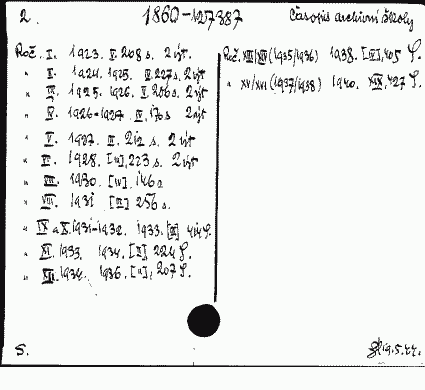 2. 1860-127387 Časopis archivní školy
Roč. I. 1923. V. 208 s. 2 výt.
" I. 1924. 1925. II. 227 s. 2 výt
" III. 1925. 1926. II. 206 s. 2 výt
" IV. 1926-1927. IV. 170 s 2 výt
" V. 1927. II. 212 s. 2 výt
" VI. 1928. [IV], 223 s. 2 výt
" VII. 1930. [IV]. 146 s
" VIII. 1931 [III] 256 s.
" IX a X. 1931-1932. 1933. [III] 414 S.
" XI. 1933. 1934. [II] 224 S.
" XII. 1934. 1936. [II], 207 S.
Roč. XIII/XIV (1935/1936) 1938. [IV], 405 S.
" XV/XVI (1937/1938) 1940. XIX, 427 S.
S.
19.5.44.